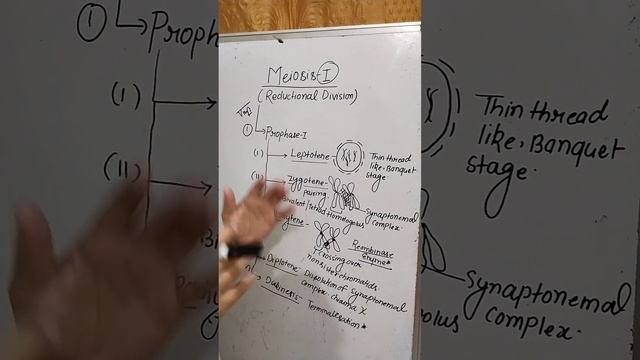 Meiosis-I
(Reductional Division)
Imp
① Prophase-I
(I) Leptotene - Thin thread like, Banquet stage.
(II) Zygotene - pairing
Bivalent/Tetrad Homologous
Synaptonemal complex.
crossing over
non sister chromatids.
Rcombinase enzyme*
Diplotene - Dissolution of Synaptonemal complex chiasma X
Diakinesis - Terminalisation*
① Prophase
(I)
(II)
Thin thread
like, Banquet
stage.
Synaptonemal
complex.